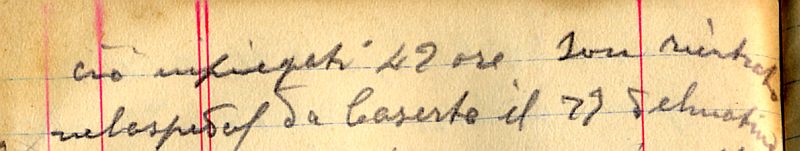 ciò inpiegati 42 ore son rientrato
nelospedal da Caserta il 29 delmatino